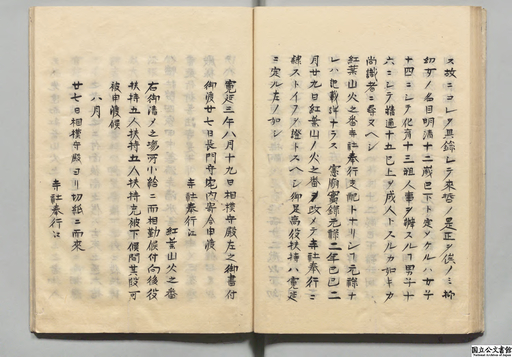 ス故ニコレヲ具録シテ來哲ノ是正ヲ俟ノミ抑
幼女ノ名目明清十二歳已下ト定メケルハ女子
十四ニシテ化育十三
六ニシテ精通十五已上ヲ成人トスルカ如キカ
尚識者ニ尋ヌヘシ
紅葉山火之番寺社奉行支配トナリシハ元禄ナ
レハ
月廿九日紅葉山ノ火之番ヲ改メテ寺社奉行ニ
隷ストイフヲ證トスヘシ御足高役扶持ハ寛延
ニ定ル左ノ如シ
寛延三午八月十九日相模守殿左之御書付
御渡廿七日長門守宅内寄合申渡
寺社奉行江
紅葉山火之番
右御清メ之場所小給ニ而相勤候付向後役
扶持五人扶持五人扶持充被下候間其段可
被申渡候
八月
廿七日相模守殿ヨリ切紙ニ而來
寺社奉行江
国立公文書館
National Archives of Japan